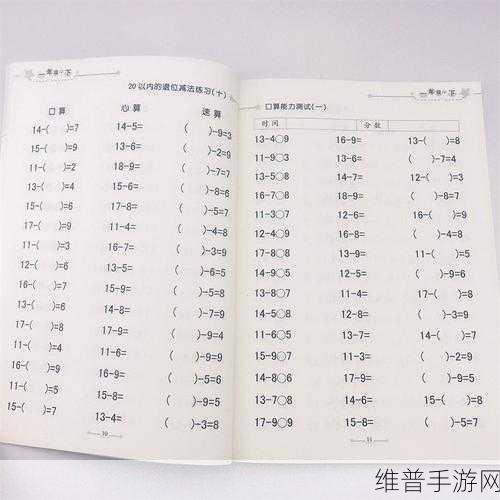 一年级 下
20以内的退位减法练习(十)
口算 心算 速算
14-( )=7 14-5= ( )-9=3
15-( )=9 13-6= ( )-2=9
11-( )=2 18-9= ( )-7=7
13-( )=4 15-6= ( )-8=6
15-( )=6 17-8= ( )-5=7
17-( )=9 11-4= ( )-4=8
11-( )=3 16-7= ( )-3=9
12-( )=6 13-5= ( )-6=5
16-( )=7 15-9= ( )-5=8
13-( )=6 14-8= ( )-7=9
17-( )=8 17-9= ( )-9=4
11-( )=4 11-6= ( )-9=9
16-( )=9 16-9= ( )-5=6
11-( )=5 11-5= ( )-9=5
15-( )=7 13-4= ( )-3=8
10
一年级 下
口算能力测试(一)
时间 分数
13-4○9 16-9= 13-( )=8
11-9○3 13-6= ( )-7=4
13-5○8 14-7= 12-( )=3
16-7○8 18-9= ( )-8=7
11-3○7 12-6= 16-( )=9
12-4○9 16-8= ( )-4=7
17-8○8 13-9= 11-( )=5
14-9○5 12-5= ( )-9=6
13-8○7 11-4= ( )-8=8
14-8○7 12-8= ( )-3=9
12-6○5 13-7= 14-( )=7
15-9○7 11-3= ( )-2=9
14-8○6 12-3= 16-( )=9
13-7○8 14-8= 15-( )=8
17-9○9 15-8= ( )-5=7
11
维普手游网